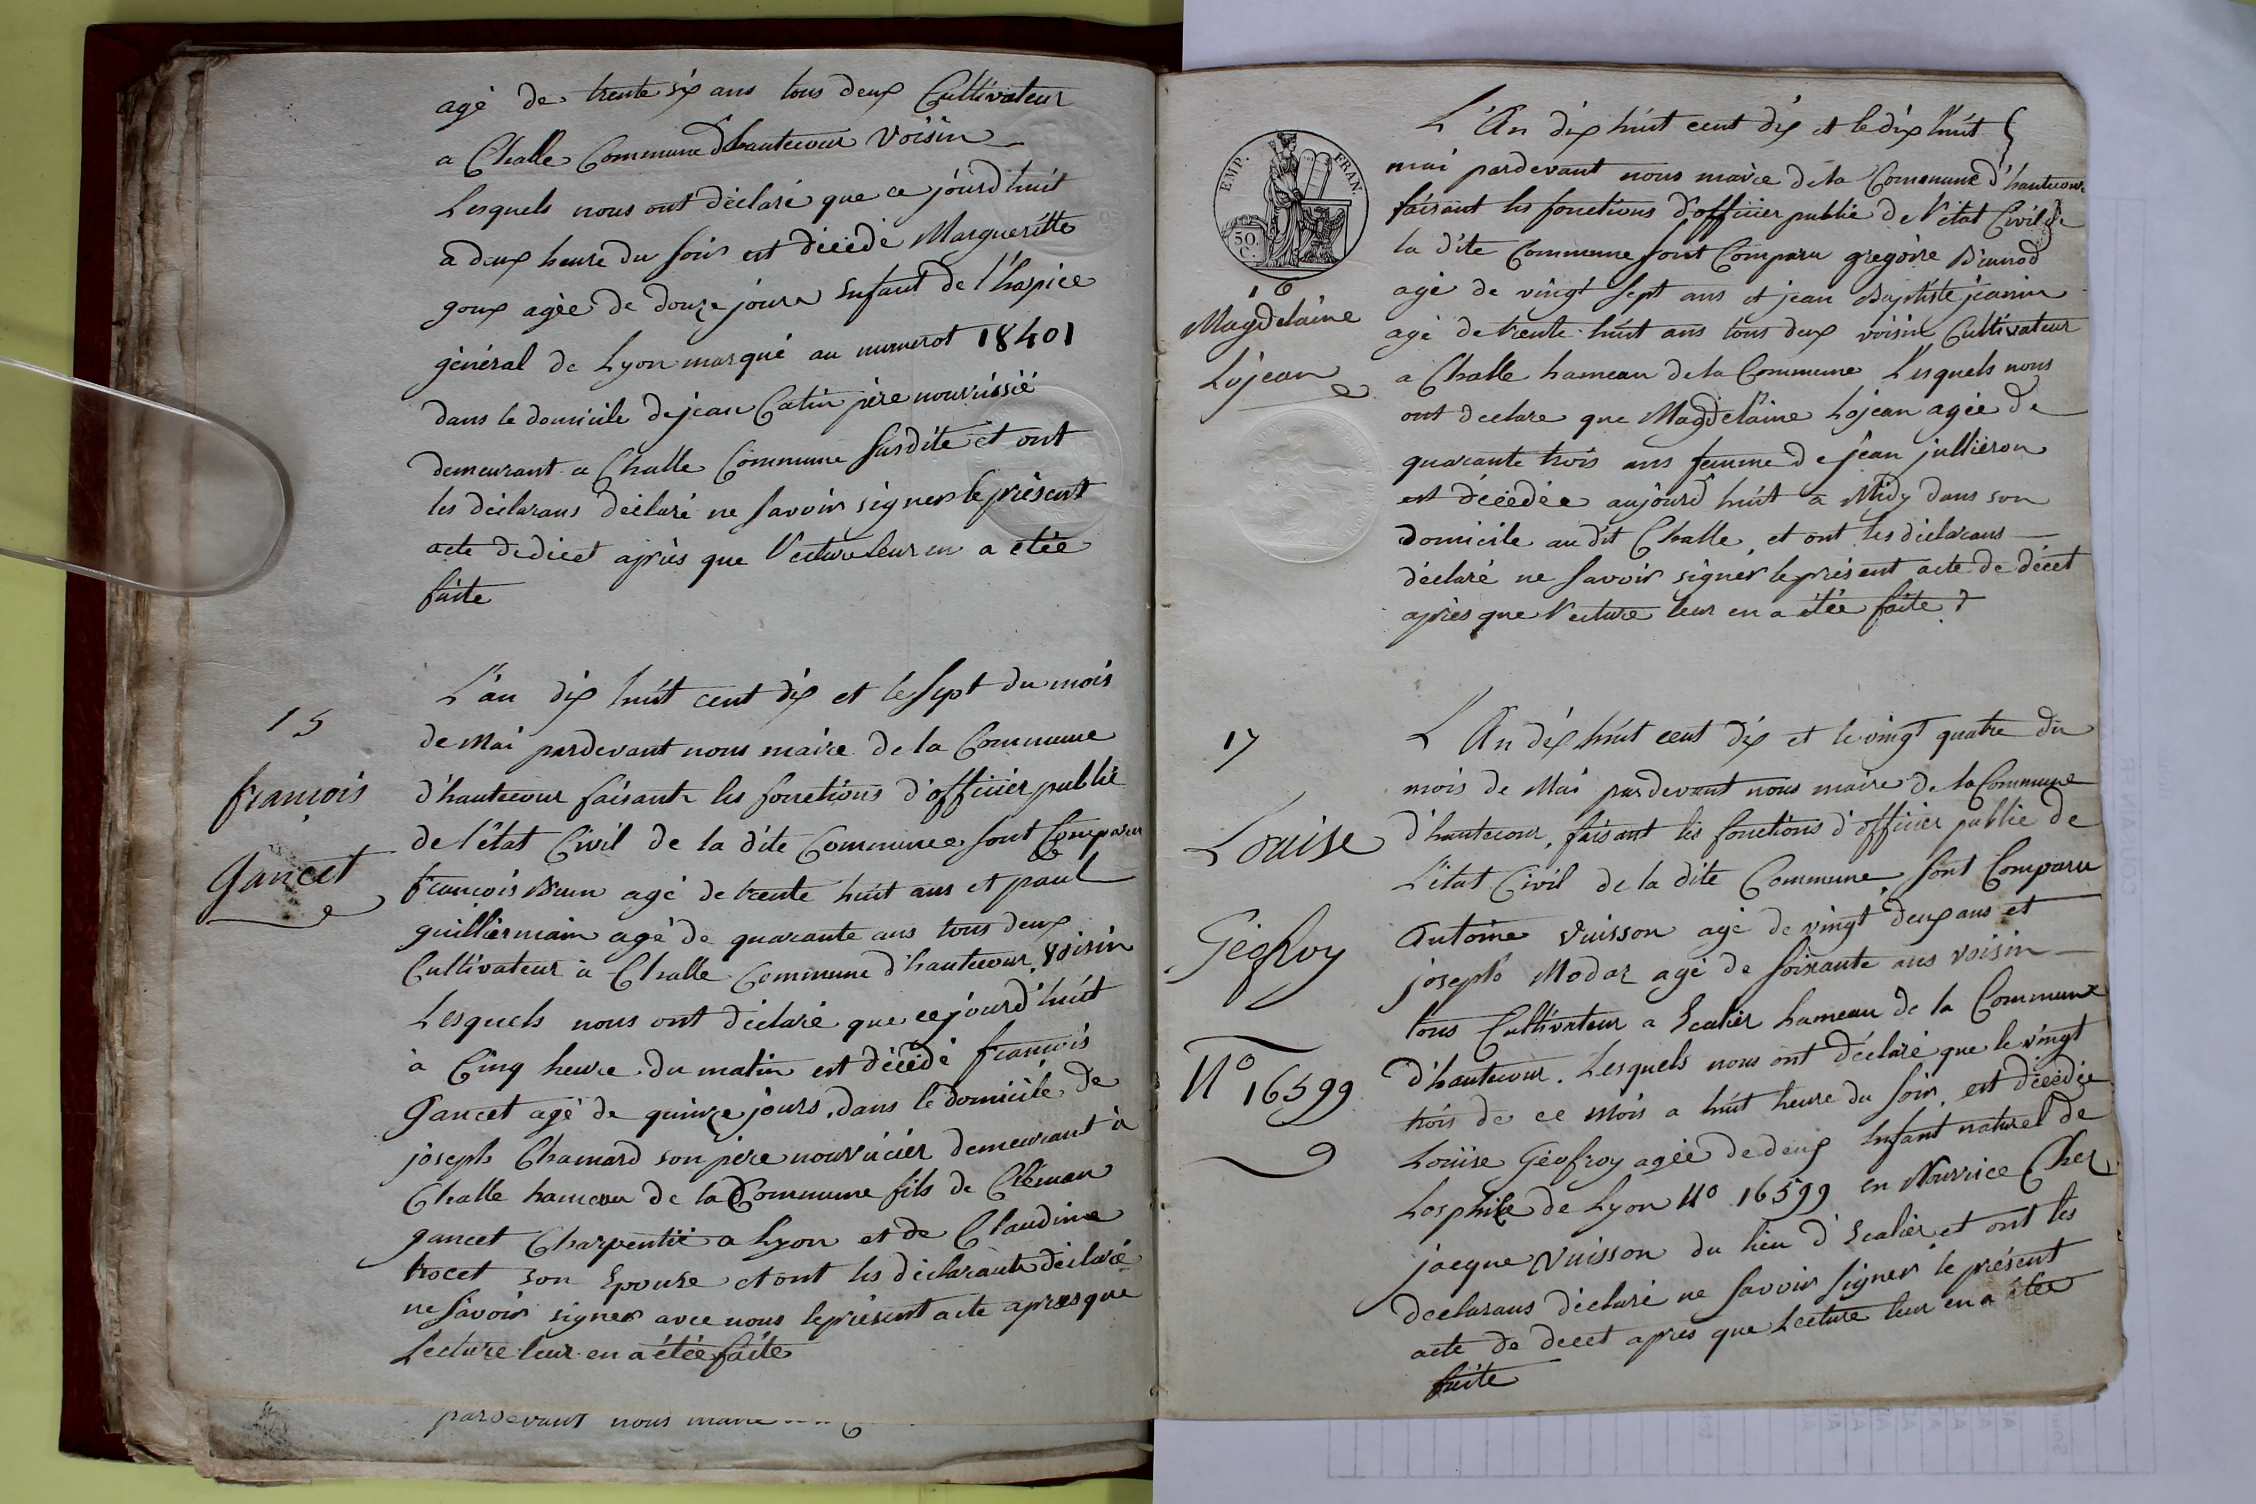 agé de trente six ans tous deux Cultivateur
a Challe Commune d'hautecour Voisin
Lesquels nous ont déclaré que ce jourd'huit
a deux heure du soir est décédé Margueritte
goux agée de douze jours Enfant de l'hospice
général de Lyon marqué au numerot 18401
dans le domicile de jean Catin père nourrissié
demeurant a Challe Commune susdite et ont
les déclarans déclaré ne savoir signer le présent
acte de dicet après que Lecture leur en a étée
faite
15
françois
Gancet
L'an dix huit cent dix et le sept du mois
de Mai pardevant nous maire de la Commune
d'hautecour faisant les fonctions d'officier public
de l'état Civil de la dite Commune sont Comparu
françois Brun agé de trente huit ans et paul
guillermain agé de quarante ans tous deux
Cultivateur à Challe Commune d'hautecour, Voisin
Lesquels nous ont déclaré que ce jourd'huit
à Cinq heure du matin est décédé françois
Gancet agé de quinze jours, dans le domicile de
joseph Chamard son père nourricier demeurant à
Challe hameau de la Commune fils de Cléman
gancet Charpentié a Lyon et de Claudine
trocet son Epouse et ont les déclarants déclaré
ne savoir signer avec nous le présent acte après que
Lecture leur en a étée faite
pardevant nous maire
EMP. FRAN.
50.
C.
16
Magdelaine
Lojean
L'An dix huit cent dix et le dix huit
mai pardevant nous maire de la Commune d'hautecour
faisant les fonctions d'officier public de l'état Civil de
la dite Commune sont Comparu gregoire Brunod
agé de vingt sept ans et jean Baptiste jeanin
agé de trente huit ans tous deux voisin Cultivateur
a Challe hameau de la Commune Lesquels nous
ont declare que Magdelaine Lojean agée de
quarante trois ans femme de jean jullieron
est décédée aujourd'huit a Midy dans son
domicile au dit Challe, et ont les déclarans
déclaré ne savoir signer le présent acte de décet
après que Lecture leur en a étée faite
17
Louise
Géofroy
N° 16599
L'An dix huit cent dix et le vingt quatre du
mois de Mai pardevant nous maire de la Commune
d'hautecour, faisant les fonctions d'officier public de
L'état Civil de la dite Commune, sont Comparu
Antoine Vuisson agé de vingt deux ans et
joseph Modaz agé de soixante ans voisin
tous Cultivateur a Scalier hameau de la Commune
d'hautecour. Lesquels nous ont déclaré que le vingt
trois de ce mois a huit heure du soir, est décédée
Louise Géofroy agée de deux Enfant naturel de
Losphice de Lyon N° 16599 en Nourrice Chez
jacque Vuisson du lieu d'Scalier et ont les
declarans déclaré ne savoir signer le présent
acte de decet après que Lecture leur en a étée
faite